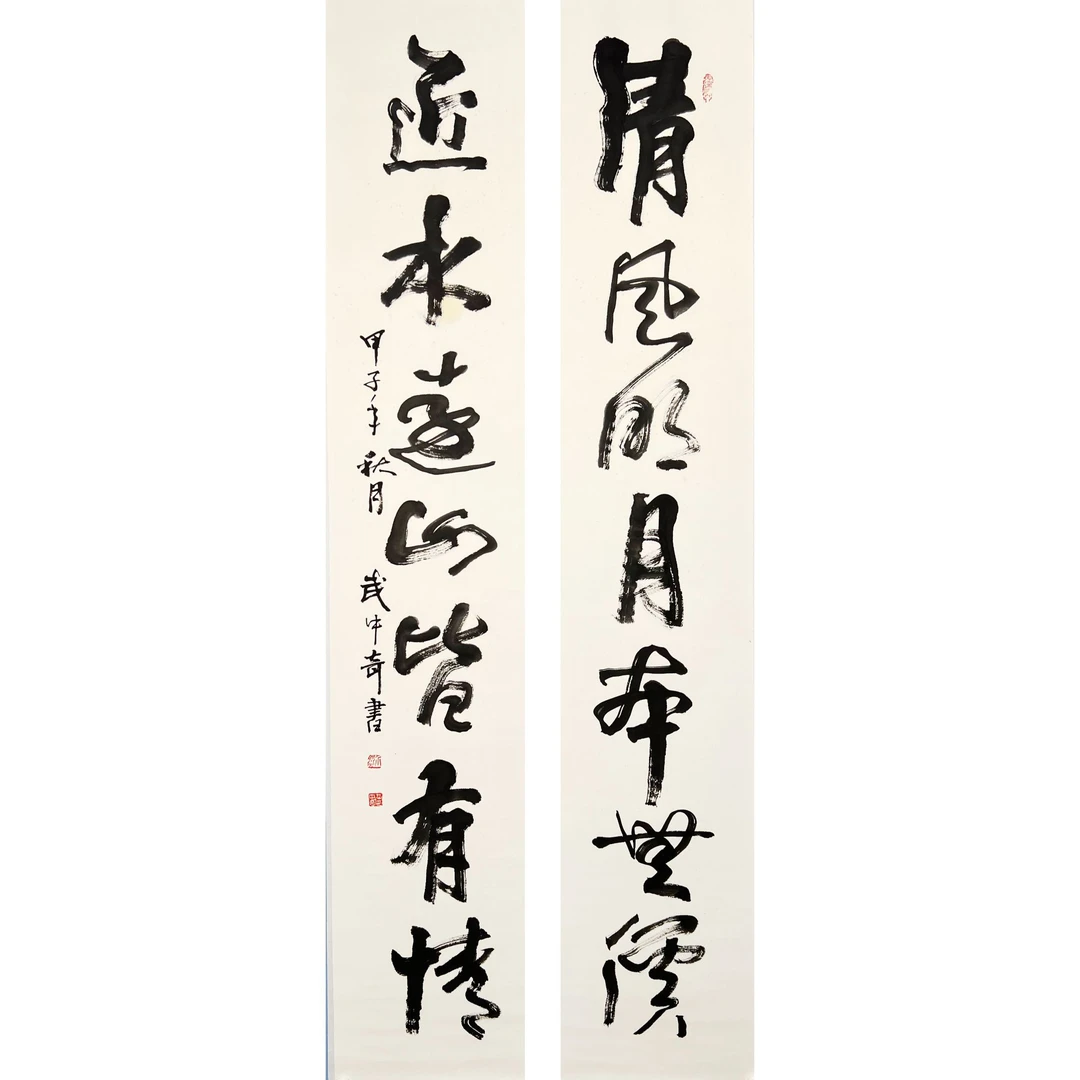 清風明月本無價
近水遠山皆有情
甲子年秋月 武中奇書